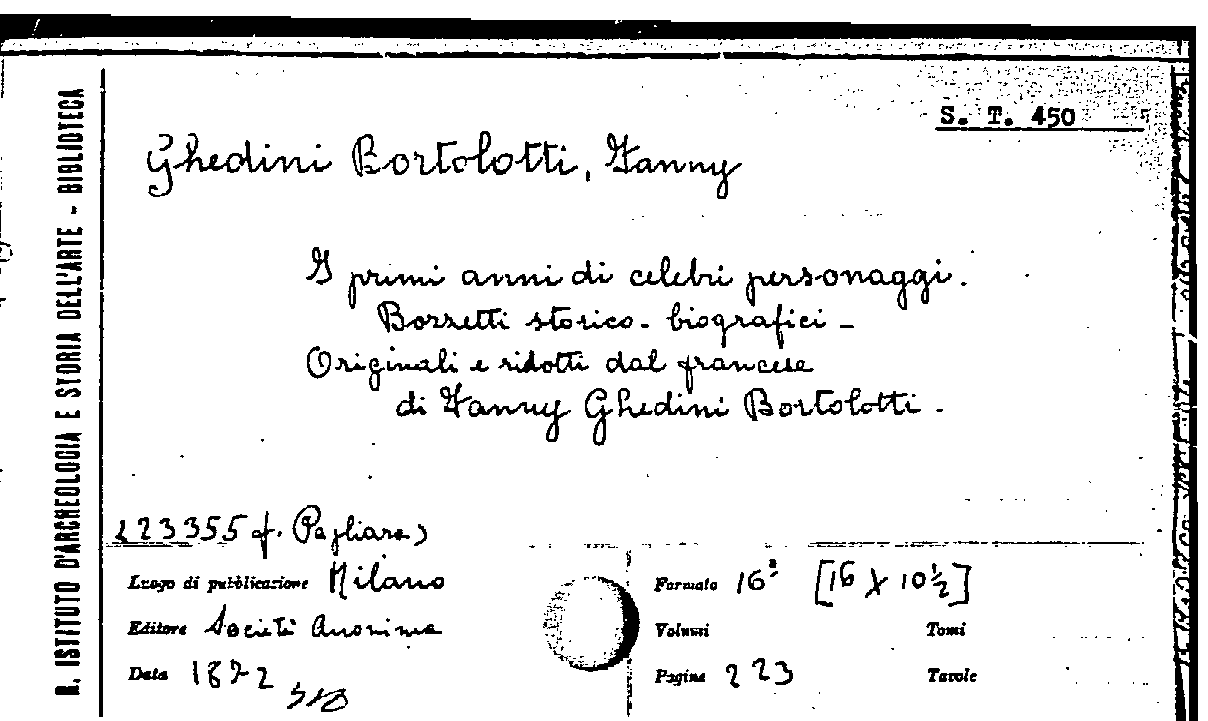 R. ISTITUTO D'ARCHEOLOGIA E STORIA DELL'ARTE - BIBLIOTECA
S. T. 450
Ghedini Bortolotti, Fanny
I primi anni di celebri personaggi.
Bozzetti storico-biografici -
Originali e ridotti dal francese
di Fanny Ghedini Bortolotti.
223355 f. Pagliara)
Luogo di pubblicazione Milano
Editore Società Anonima
Data 1872
Formato 16° [16 x 10½]
Volumi
Tomi
Pagine 223
Tavole